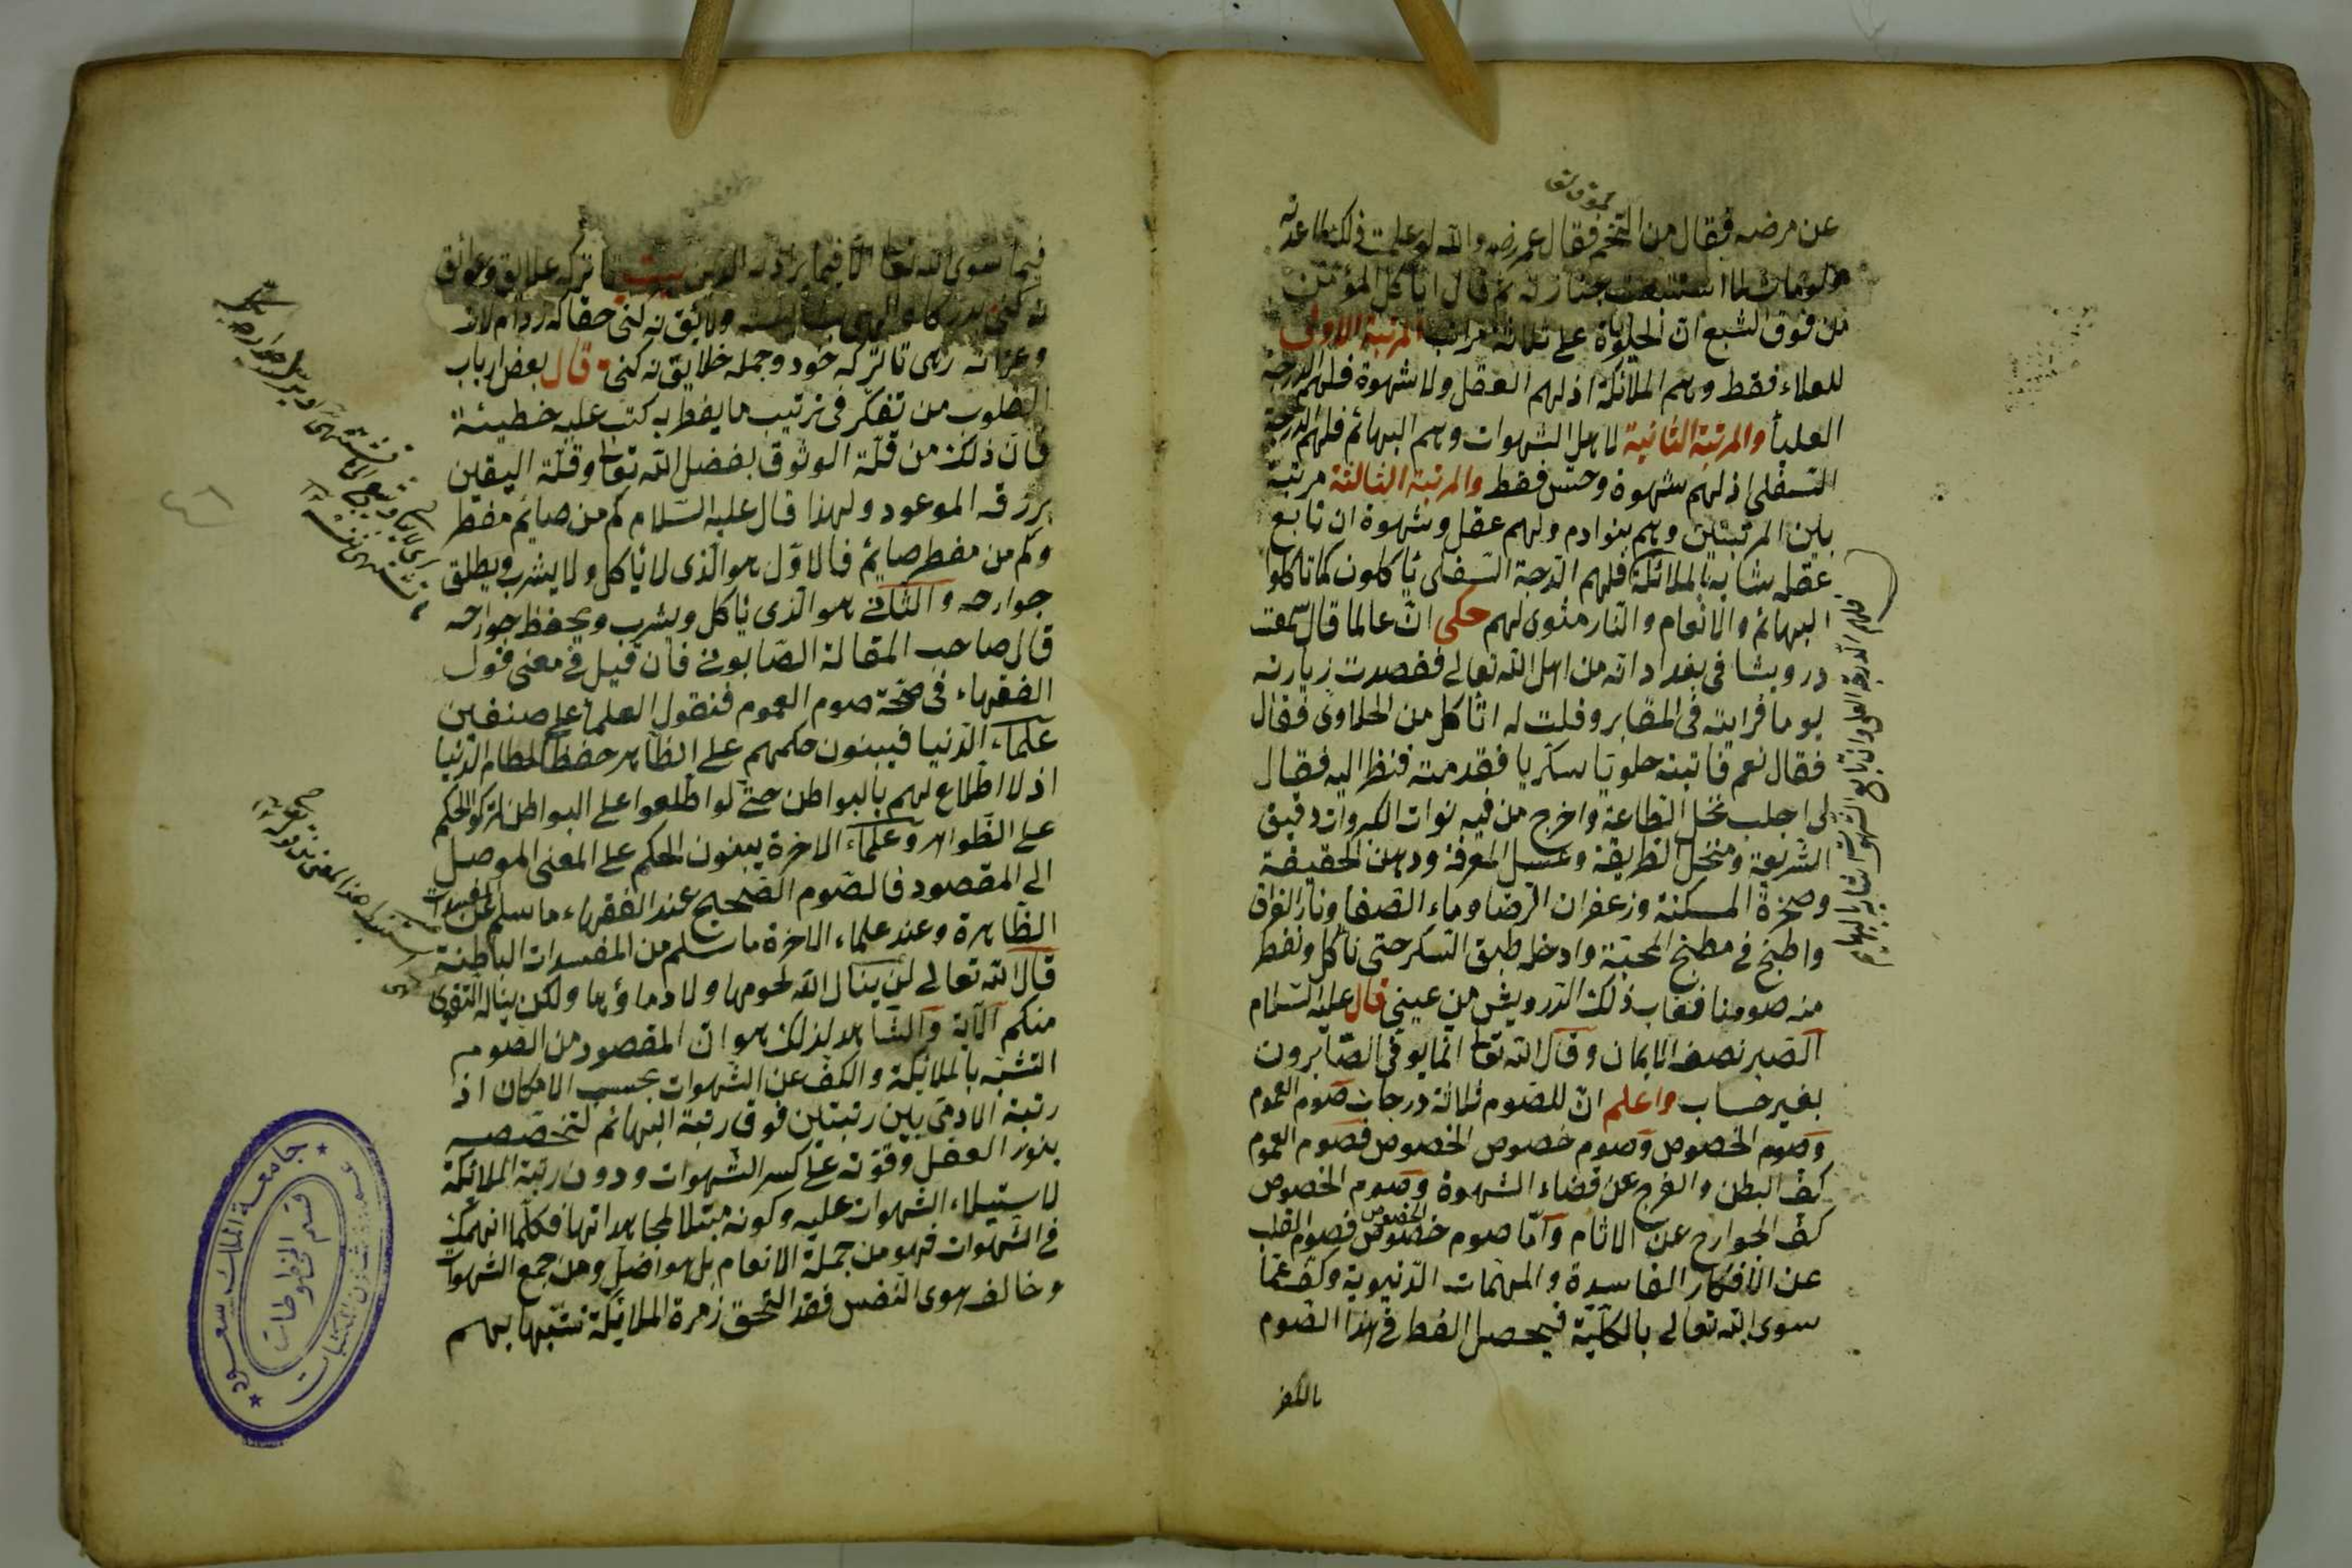 عن مرضه فقال من التخم فقال عمر رضه والله لو علمت ذلك ما عدته
ولو مات لما استتبعت جنازته ثم قال اياكل المؤمن
من فوق الشبع ان الحلوة على ثلاثة مراتب المرتبة الاولى
للعلاء فقط وهم الملائكة اذ لهم العقل ولا شهوة فلهم الدرجة
العليا والمرتبة الثانية لاهل الشهوات وهم البهائم فلهم الدرجة
السفلى اذ لهم شهوة وحس فقط والمرتبة الثالثة مرتبة
بين المرتبتين وهم بنوادم ولهم عقل وشهوة ان تابع
عقله شابه بالملائكة فلهم الدرجة السفلى يأكلون كما تاكلوا
البهائم والانعام والنار مثوى لهم حكى ان عالما قال سمعت
درويشا في بغداد انه من اهل الله تعالى فقصدت زيارته
يوما فرايته في المقابر وقلت له اتأكل من الحلاوى فقال
فقال نعم فاتيته حلويا سكريا فقدمته فنظر اليه فقال
لى اجلب نخل الطاعة واخرج من فيه نوات الكبر وات دقيق
الشريعة ومنخل الطريقة وعسل المعرفة ودهن الحقيقة
وصخرة المسكنة وزعفران الرضا وماء الصفا ونار الفراق
واطبخ في مطبخ المحبة وادخله طبق السكر حتى نأكل ونفطر
منه صومنا فغاب ذلك الدرويش من عينى قال عليه السلام
الصبر نصف الايمان وقال الله تعا انما يوفى الصابرون
بغير حساب واعلم ان للصوم ثلاثة درجات صوم العموم
وصوم الخصوص وصوم خصوص الخصوص فصوم العموم
كف البطن والفرج عن قضاء الشهوة وصوم الخصوص
كف الجوارح عن الاثام واما صوم خصوص الخصوص فصوم القلب
عن الافكار الفاسدة والمهمات الدنيوية وكفه عما
سوى الله تعالى بالكلية فيحصل الفطر في هذا الصوم
بالفكر
فلهم الدرجة العليا وان تابع الشهوات شابه بالبهايم
فيما سوى الله تعا الا فيما يراد به الدين بيت تا ترك علايق وعوائق
نه كنى
وعزانه رهى تا ترك خود وجمله خلايق نه كنى وقال بعض ارباب
القلوب من تفكر فى ترتيب ما يفطر به كتب عليه خطيئة
فان ذلك من قلة الوثوق بفضل الله تعا وقلة اليقين
برزقه الموعود ولهذا قال عليه السلام كم من صايم مفطر
وكم من مفطر صايم فالاول هو الذى لا يأكل ولا يشرب ويطلق
جوارحه والثانى هو الذى يأكل ويشرب ويحفظ جوارحه
قال صاحب المقالة الصابونى فان قيل فى معنى قول
الفقهاء فى صحة صوم العموم فنقول العلماء على صنفين
علماء الدنيا فيبنون حكمهم على الظاهر حفظا لحطام الدنيا
اذ لا اطلاع لهم بالبواطن حتى لو اطلعوا على البواطن لتركوا الحكم
على الظواهر وعلماء الاخرة يبنون الحكم على المعنى الموصل
الى المقصود فالصوم الصحيح عند الفقهاء ما سلم عن المفسدات
الظاهرة وعند علماء الاخرة ما سلم من المفسدات الباطنة
قال الله تعالى لن ينال الله لحومها ولا دماؤها ولكن يناله التقوى
منكم الاية والشاهد لذلك هو ان المقصود من الصوم
التشبه بالملائكة والكف عن الشهوات بحسب الامكان اذ
رتبة الادمى بين رتبتين فوق رتبة البهائم لتخصصه
بنور العقل وقوته على كسر الشهوات ودون رتبة الملائكة
لاستيلاء الشهوات عليه وكونه مبتلا لمجاهداتها فكلما انهمك
فى الشهوات فهو من جملة الانعام بل هو اضل ومن جمع الشهوات
وخالف هوى النفس فقد التحق زمرة الملائكة تشبها بهم
جامعة الملك سعود
قسم المخطوطات
عمادة شؤون المكتبات